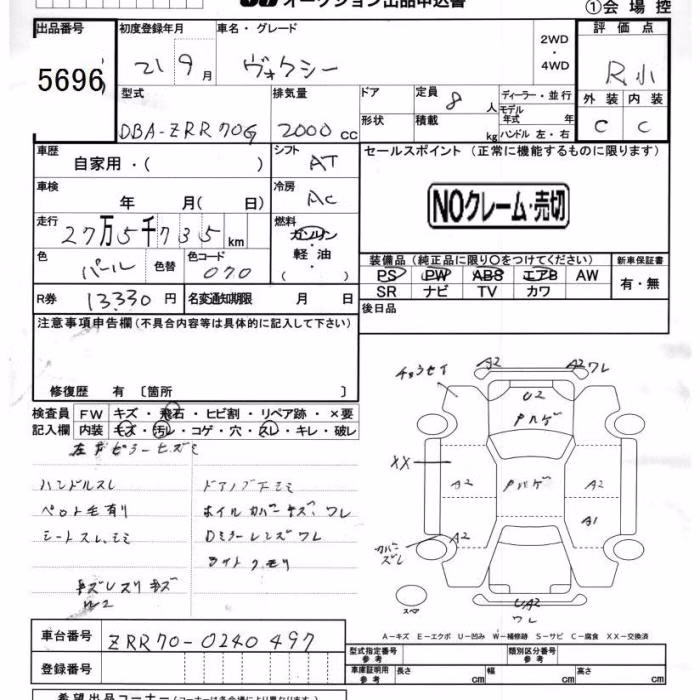 オークション出品申込書
①会場控
出品番号 5696
初度登録年月 21 9月
車名・グレード ヴォクシー
2WD ・ 4WD
評価点 R小
外装 内装
C C
型式 DBA-ZRR70G
排気量 2000cc
ドア
形状
定員 8人
積載 kg
ディーラー・並行
モデル年式 年
ハンドル 左・右
車歴 自家用・( )
シフト AT
セールスポイント (正常に機能するものに限ります)
車検 年 月( 日)
冷房 AC
NOクレーム・売切
走行 27万5千735km
燃料 ガソリン・軽油 ( )
色 パール 色替
色コード 070
装備品 (純正品に限り〇をつけてください)
新車保証書
PS PW ABS エアB AW
SR ナビ TV カワ
有・無
R券 13.330円
名変通知期限 月 日
後日品
注意事項申告欄(不具合内容等は具体的に記入して下さい)
修復歴 有〔箇所 〕
検査員記入欄
FW キズ・飛石・ヒビ割・リペア跡・×要
内装 キズ・汚レ・コゲ・穴・スレ・キレ・破レ
ハンドルスレ
ペット毛有リ
ホイルカバーキズ、ワレ
シートスレ、シミ
Dミラーレンズワレ
ライトクモリ
A2 A2ワレ
U2
XX
A2 A2
A1
A2
スペア
UA2
ワレ
A-キズ E-エクボ U-凹み W-補修跡 S-サビ C-腐食 XX-交換済
車台番号 ZRR70-0240497
登録番号
型式指定番号 参考
類別区分番号 参考
車庫証明用 参考
長さ cm 幅 cm 高さ cm
希望出品コーナー